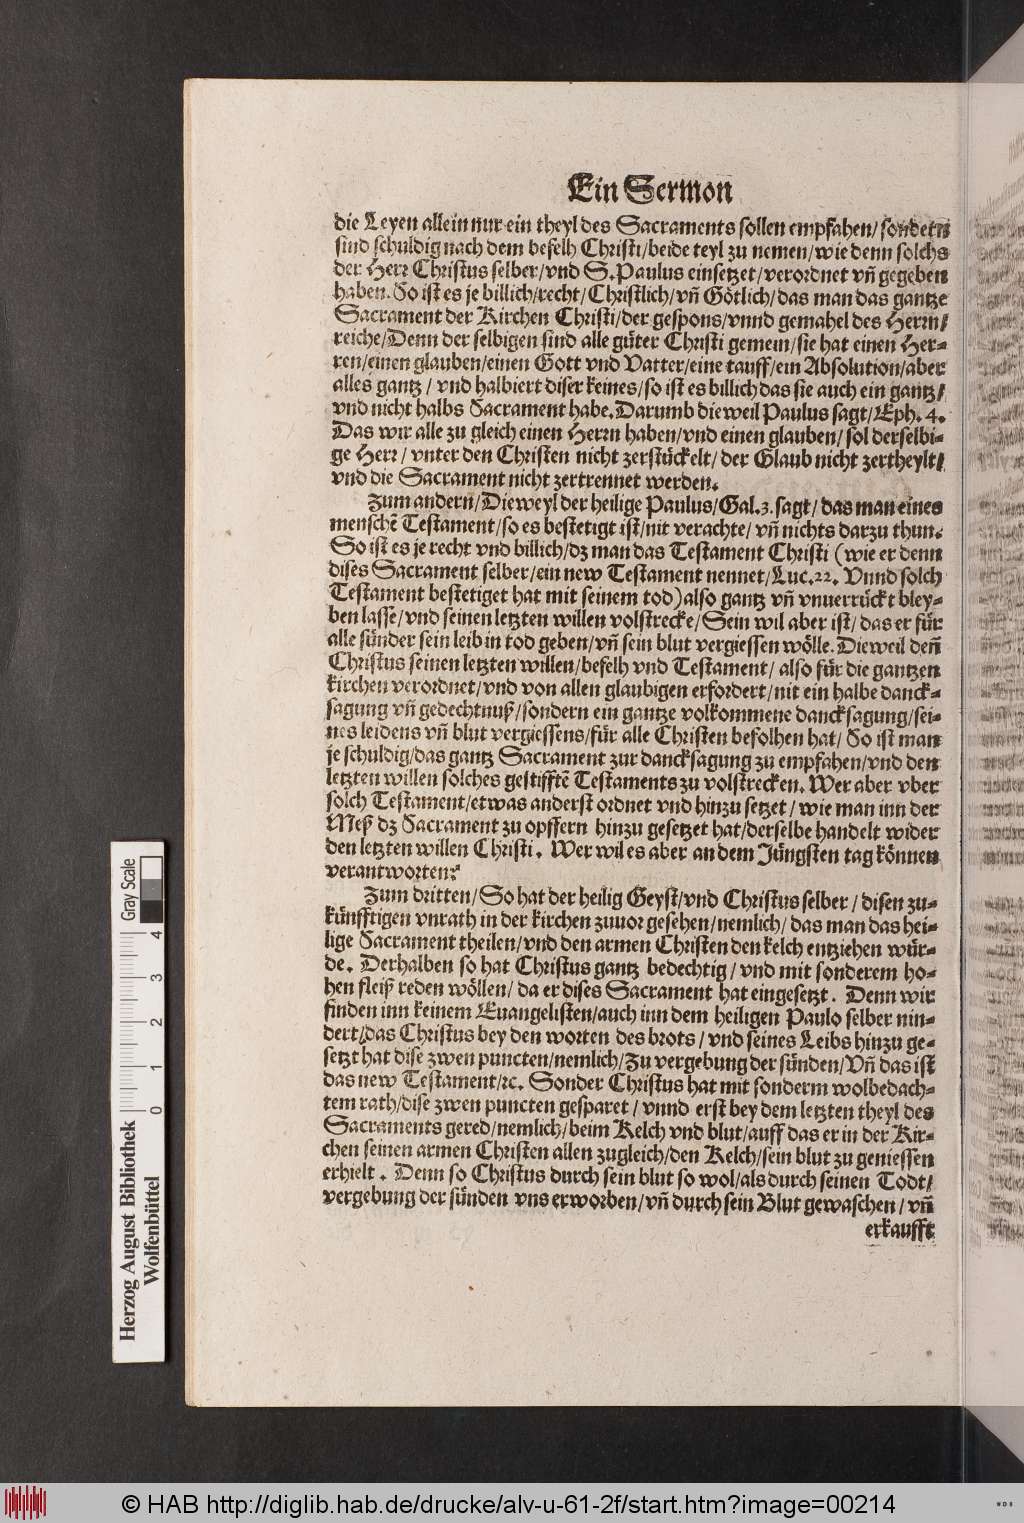 Ein Sermon
die Leyen allein nur ein theyl des Sacraments sollen empfahen/ sondern
sind schuldig nach dem befelh Christi/beide teyl zu nemen/wie denn solchs
der Herr Christus selber/vnd S. Paulus einsetzet/verordnet vñ gegeben
haben. So ist es je billich/recht/Christlich/vñ Götlich/das man das gantze
Sacrament der Kirchen Christi/der gespons/vnnd gemahel des Herrn/
reiche/Denn der selbigen sind alle güter Christi gemein/sie hat einen Her-
ren/einen glauben/einen Gott vnd Vatter/eine tauff/ein Absolution/aber
alles gantz/ vnd halbiert diser keines/so ist es billich das sie auch ein gantz/
vnd nicht halbs Sacrament habe. Darumb dieweil Paulus sagt/Eph. 4.
Das wir alle zu gleich einen Herrn haben/vnd einen glauben/ sol derselbi-
ge Herr/ vnter den Christen nicht zerstückelt/ der Glaub nicht zertheylt/
vnd die Sacrament nicht zertrennet werden.
Zum andern/Dieweyl der heilige Paulus/Gal.3. sagt/ das man eines
menschẽ Testament/so es bestetigt ist/nit verachte/ vñ nichts darzu thun.
So ist es je recht vnd billich/dz man das Testament Christi (wie er denn
dises Sacrament selber/ein new Testament nennet/Luc.22. Vnnd solch
Testament bestetiget hat mit seinem tod) also gantz vñ vnuerrückt bley-
ben lasse/vnd seinen letzten willen volstrecke/Sein wil aber ist/ das er für
alle sünder sein leib in tod geben/vñ sein blut vergiessen wölle. Dieweil deñ
Christus seinen letzten willen/befelh vnd Testament/ also für die gantzen
kirchen verordnet/vnd von allen glaubigen erfordert/nit ein halbe danck-
sagung vñ gedechtnuß/sondern ein gantze volkommene dancksagung/sei-
nes leidens vñ blut vergiessens/für alle Christen befolhen hat/ So ist man
je schuldig/das gantz Sacrament zur dancksagung zu empfahen/vnd den
letzten willen solches gestifftẽ Testaments zu volstrecken. Wer aber vber
solch Testament/etwas anderst ordnet vnd hinzu setzet/ wie man inn der
Meß dz Sacrament zu opffern hinzu gesetzet hat/derselbe handelt wider
den letzten willen Christi. Wer wil es aber an dem Jüngsten tag können
verantworten?
Zum dritten/So hat der heilig Geyst/vnd Christus selber/ disen zu-
künfftigen vnrath in der kirchen zuuor gesehen/nemlich/ das man das hei-
lige Sacrament theilen/vnd den armen Christen den kelch entziehen wür-
de. Derhalben so hat Christus gantz bedechtig/ vnd mit sonderem ho-
hen fleiß reden wöllen/ da er dises Sacrament hat eingesetzt. Denn wir
finden inn keinem Euangelisten/auch inn dem heiligen Paulo selber nin-
dert/das Christus bey den worten des brots/ vnd seines Leibs hinzu ge-
setzt hat dise zwen puncten/nemlich/Zu vergebung der sünden/Vñ das ist
das new Testament/rc. Sonder Christus hat mit sonderm wolbedach-
tem rath/dise zwen puncten gesparet/ vnnd erst bey dem letzten theyl des
Sacraments gered/nemlich/beim Kelch vnd blut/auff das er in der Kir-
chen seinen armen Christen allen zugleich/den Kelch/sein blut zu geniessen
erhielt. Denn so Christus durch sein blut so wol/als durch seinen Todt/
vergebung der sünden vns erworben/vñ durch sein Blut gewaschen/ vñ
erkaufft
Herzog August Bibliothek
Wolfenbüttel
0 1 2 3 4
Gray Scale
© HAB http://diglib.hab.de/drucke/alv-u-61-2f/start.htm?image=00214